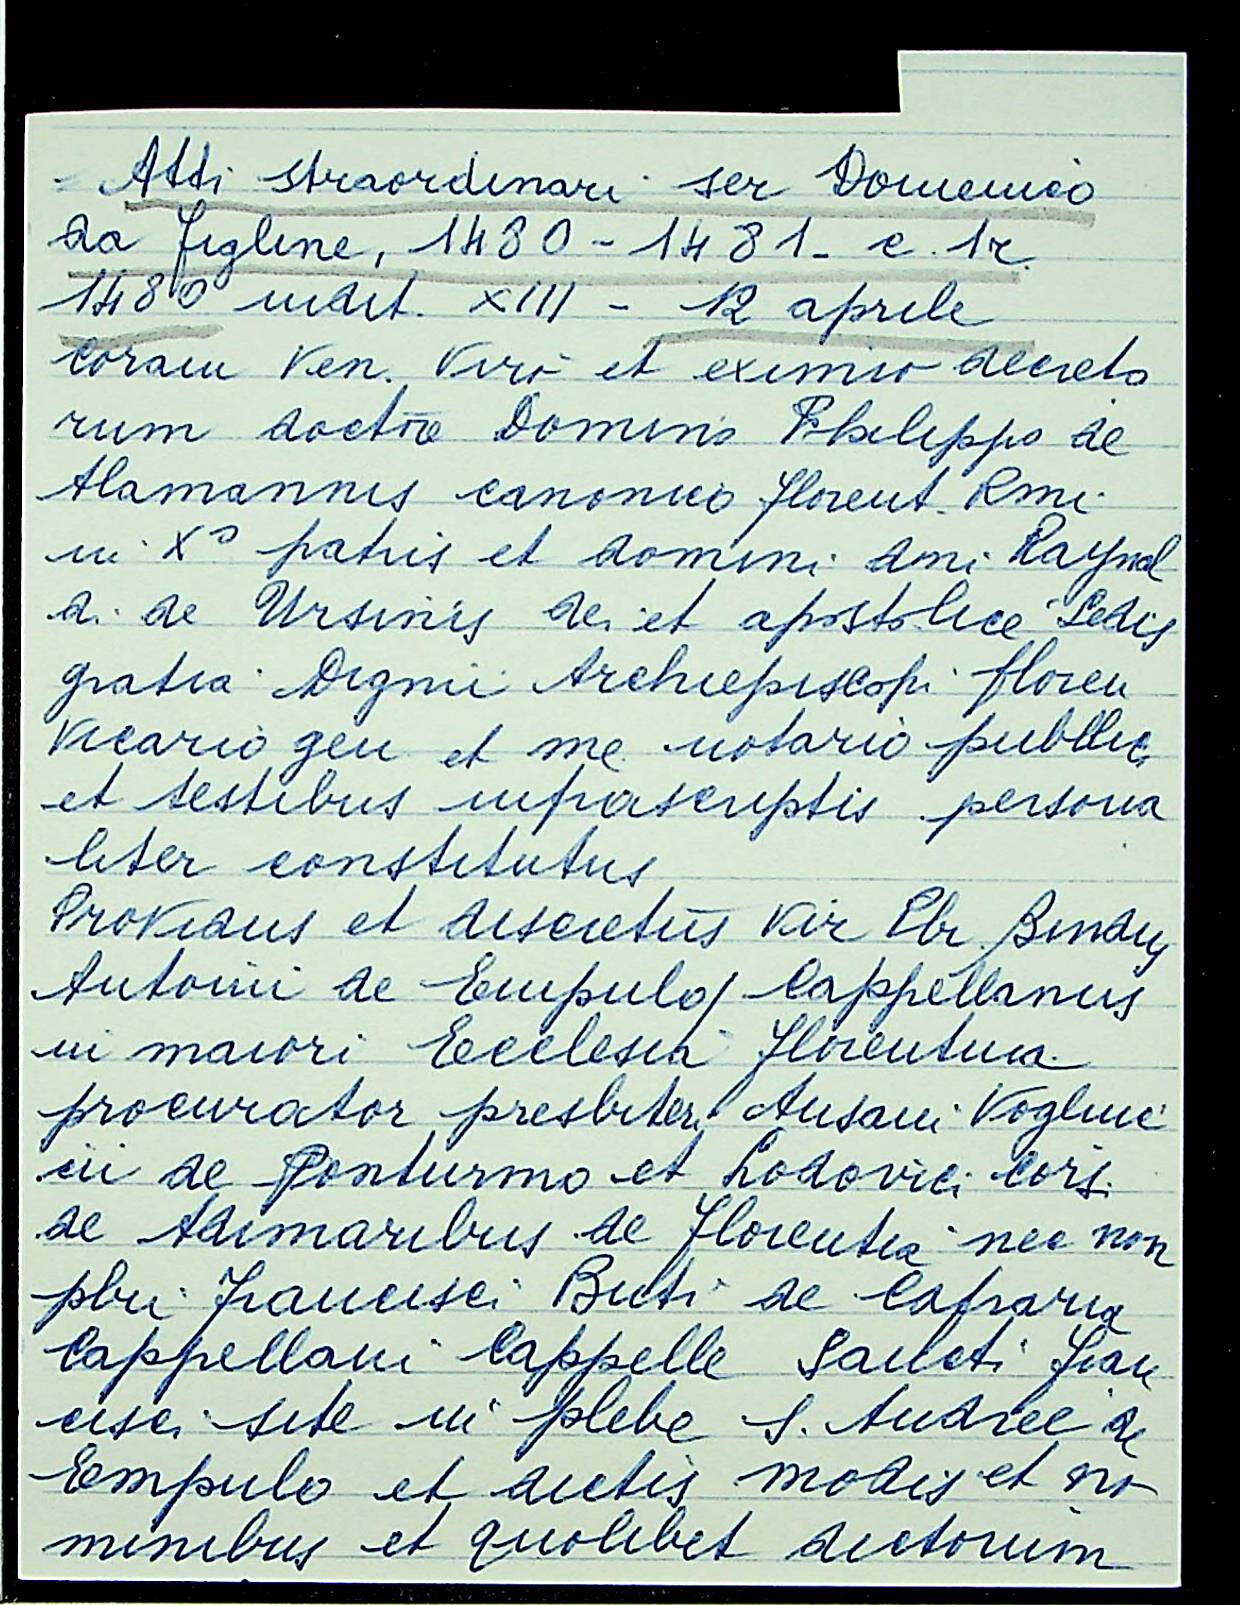 - Atti straordinari ser Domenico
da Figline, 1480 - 1481 - c. 1r.
1480 indict. XIII - 12 aprile
coram Ven. Viro et eximio decreto
rum doctore Domino Philippo de
Alamannis canonico florent. Rmi
in Xo patris et domini dni Raynal
di de Ursinis dei et apostolice Sedis
gratia Digni Archiepiscopi floren
Vicario gen et me notario publlic
et testibus infrascriptis persona
liter constitutus
Providus et discretus Vir Pbr Bindus
Antonii de Empulo/ Cappellanus
in maiori Ecclesia florentina
procurator presbiteri Ansani Voglinc
cii de Ponturmo et Lodovici cors.
de Adimaribus de florentia nec non
pbri Francisci Buti de Capraria
Cappellani Cappelle Sancti Fran
cisci site in plebe S. Andree de
Empulo et dictis modis et no
minibus et quolibet dictorum